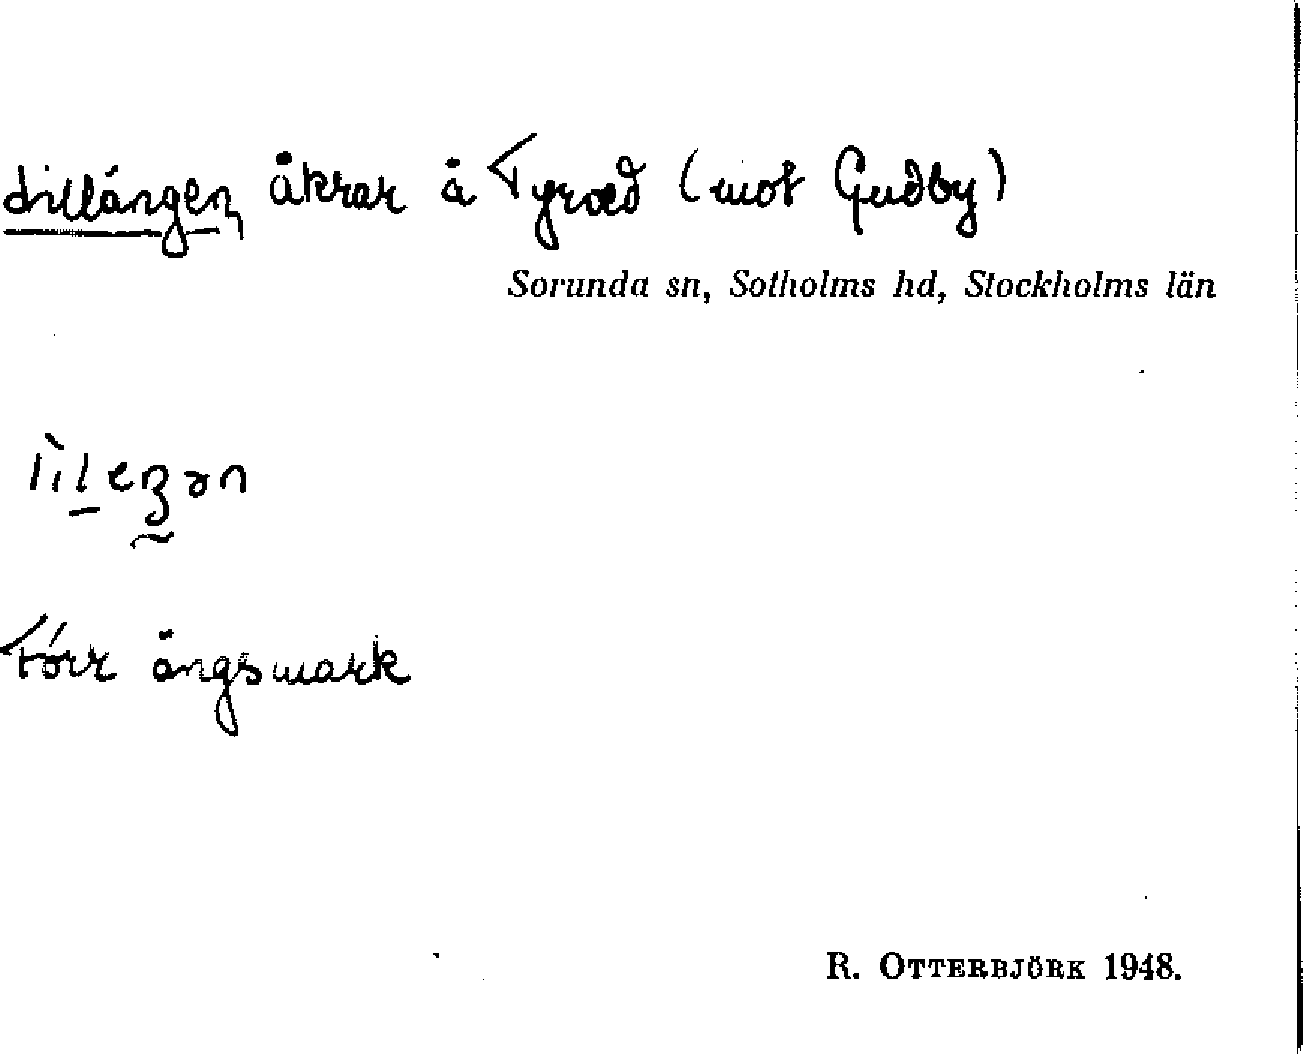 Lillängen, åkrar å Tyrved (mot Gudby)
Sorunda sn, Sotholms hd, Stockholms län
Förr ängsmark
R. OTTERBJÖRK 1948.